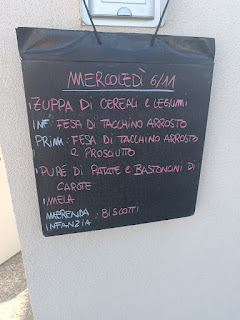 MERCOLEDÌ 6/11
ZUPPA DI CEREALI e LEGUMI
INF FESA DI TACCHINO ARROSTO
PRIM: FESA DI TACCHINO ARROSTO
e PROSCIUTTO
PURÈ DI PATATE e BASTONCINI DI
CAROTE
MELA
MERENDA : BISCOTTI
INFANZIA